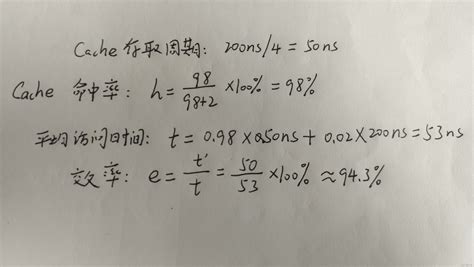 Cache 存取周期: 200ns/4 = 50ns
Cache 命中率: h = 98/(98+2) ×100% = 98%
平均访问时间: t = 0.98 × 50ns + 0.02 × 200ns = 53ns
效率: e = t'/t = 50/53 ×100% ≈ 94.3%